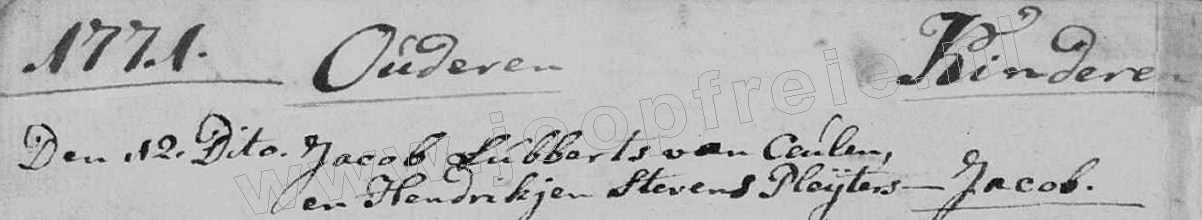 1771. Ouderen Kinderen
Den 12. Dito. Jacob Lubberts van Ceulen,
en Hendrikjen Stevens Pleijters — Jacob.
www.joopfreie.nl